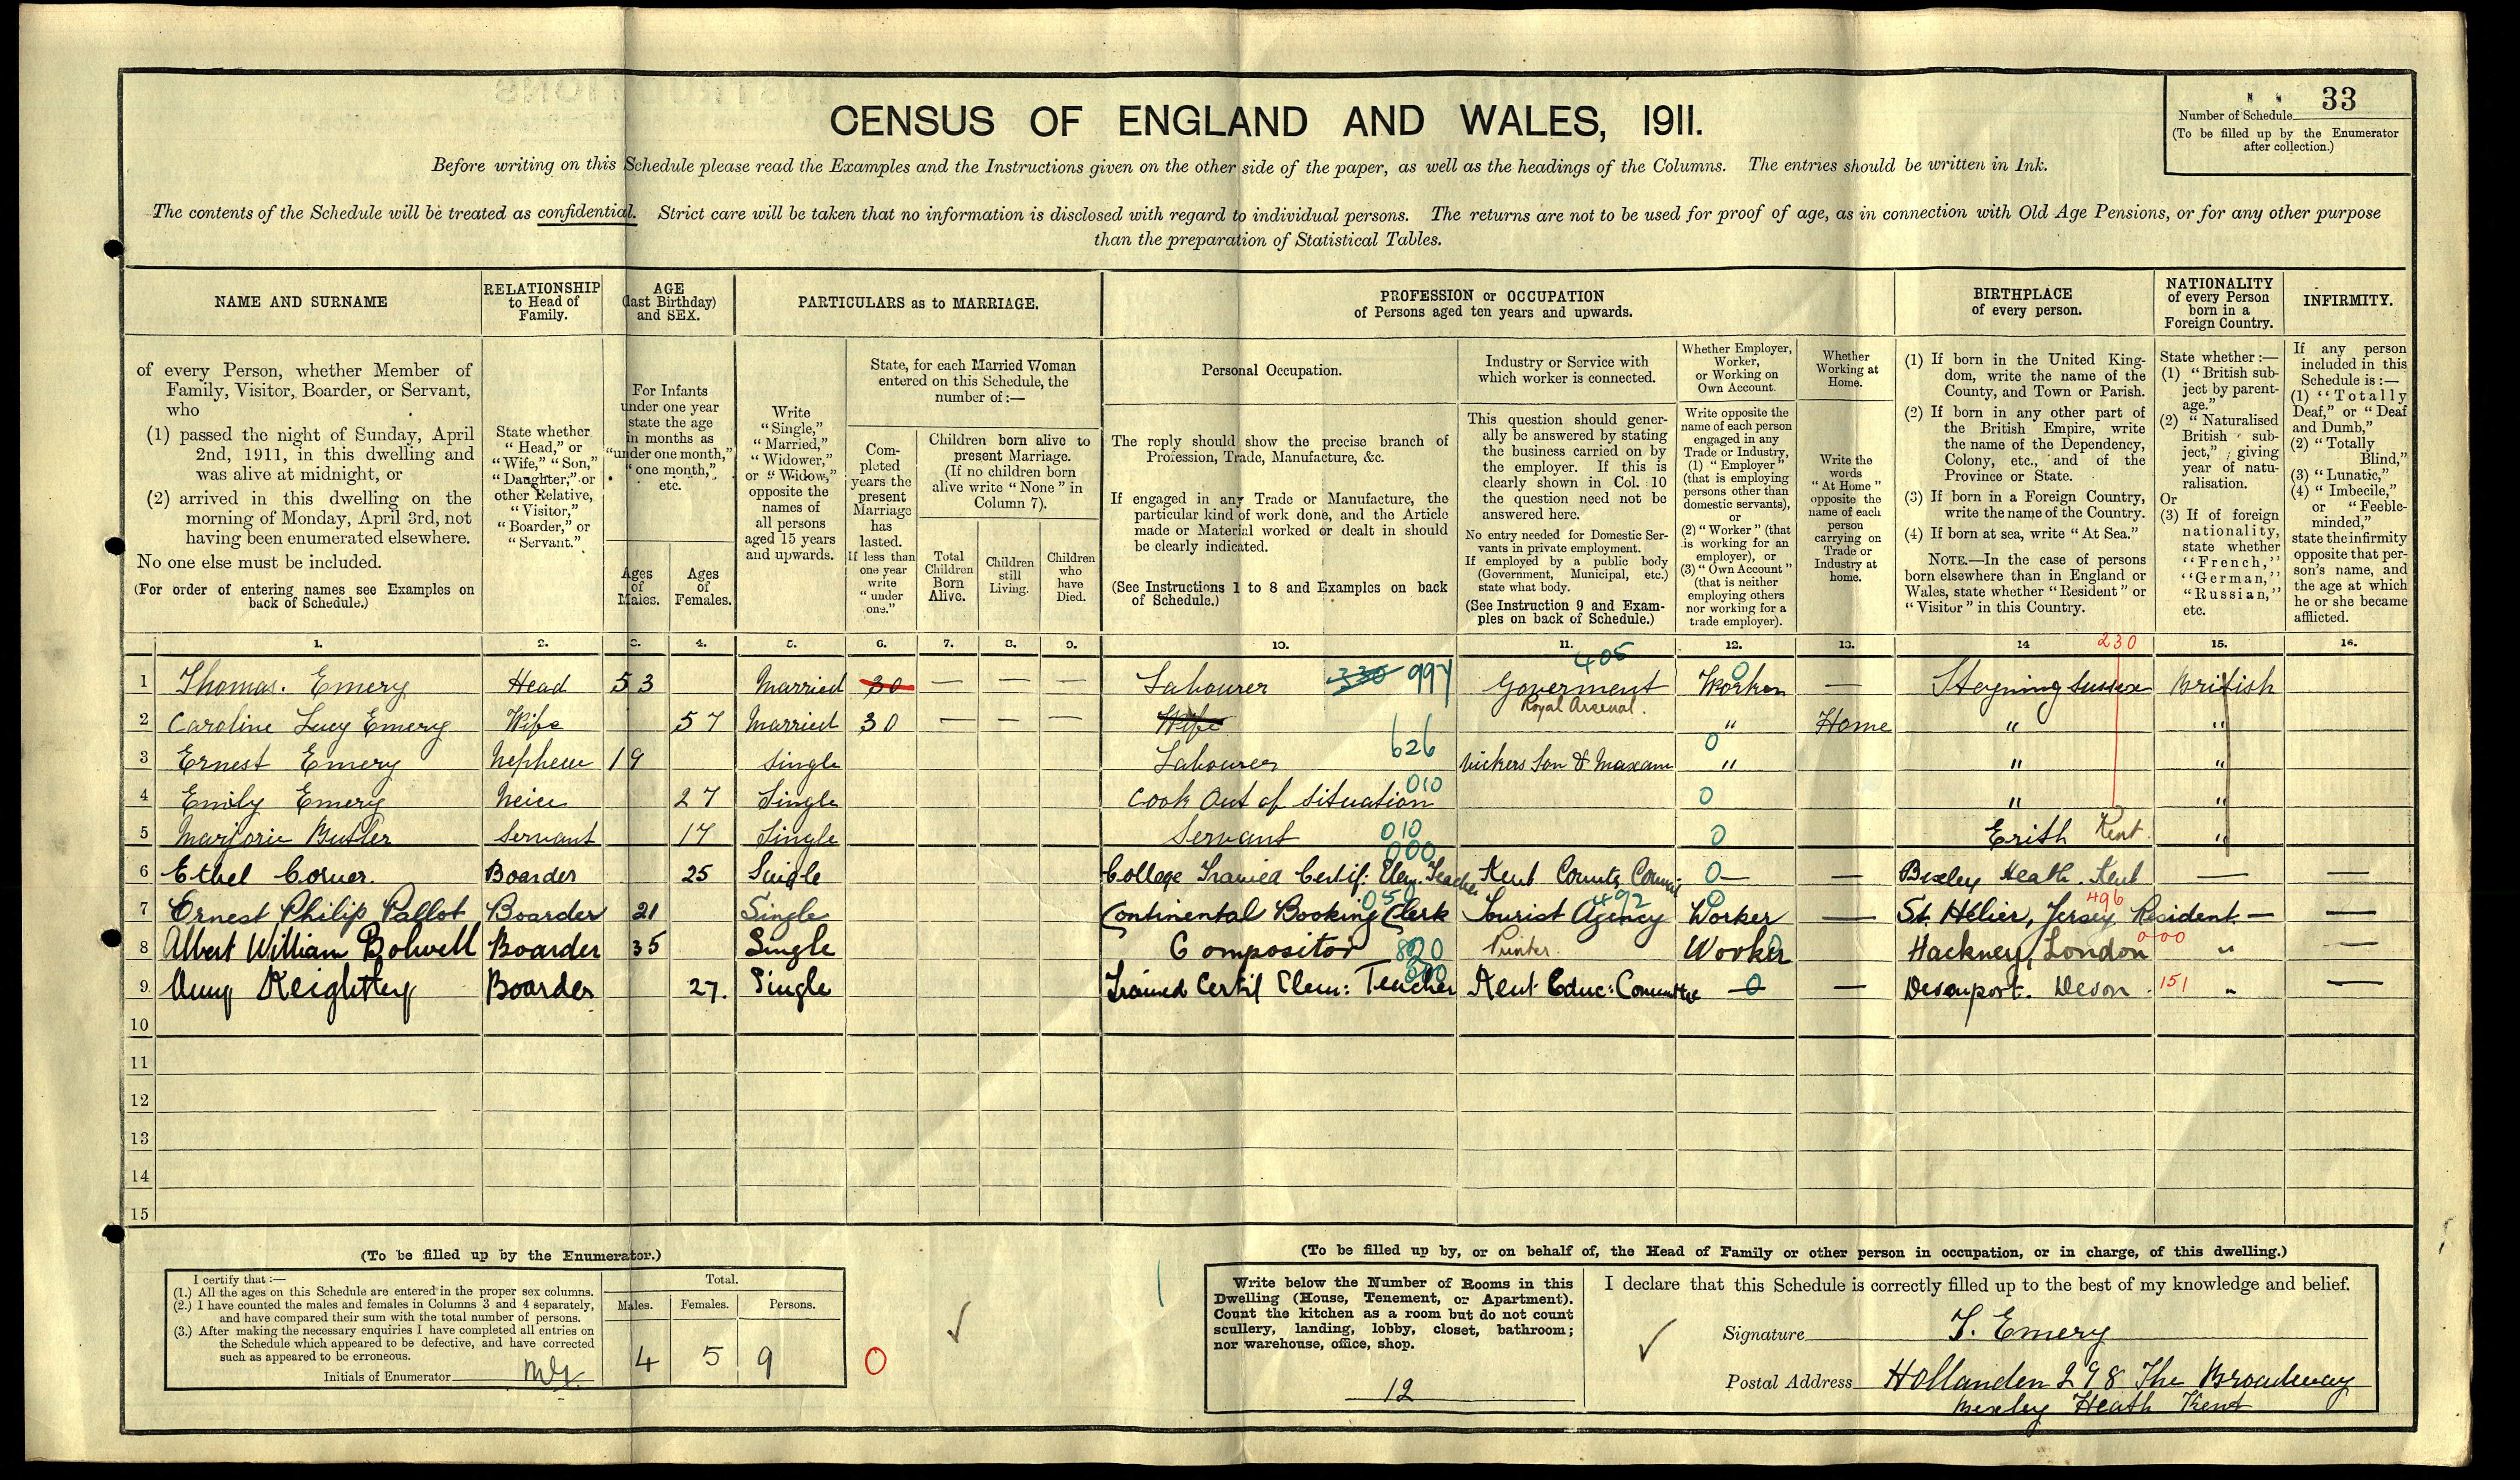 33
Number of Schedule
(To be filled up by the Enumerator
after collection.)
CENSUS OF ENGLAND AND WALES, 1911.
Before writing on this Schedule please read the Examples and the Instructions given on the other side of the paper, as well as the headings of the Columns. The entries should be written in Ink.
The contents of the Schedule will be treated as confidential. Strict care will be taken that no information is disclosed with regard to individual persons. The returns are not to be used for proof of age, as in connection with Old Age Pensions, or for any other purpose
than the preparation of Statistical Tables.
NAME AND SURNAME
of every Person, whether Member of
Family, Visitor, Boarder, or Servant,
who
(1) passed the night of Sunday, April
2nd, 1911, in this dwelling and
was alive at midnight, or
(2) arrived in this dwelling on the
morning of Monday, April 3rd, not
having been enumerated elsewhere.
No one else must be included.
(For order of entering names see Examples on
back of Schedule.)
RELATIONSHIP
to Head of
Family.
State whether
"Head," or
"Wife," "Son,"
"Daughter," or
other Relative,
"Visitor,"
"Boarder," or
"Servant."
AGE
(last Birthday)
and SEX.
For Infants
under one year
state the age
in months as
"under one month,"
"one month,"
etc.
Ages
of
Males.
Ages
of
Females.
PARTICULARS as to MARRIAGE.
Write
"Single,"
"Married,"
"Widower,"
or "Widow,"
opposite the
names of
all persons
aged 15 years
and upwards.
State, for each Married Woman
entered on this Schedule, the
number of:—
Com-
pleted
years the
present
Marriage
has
lasted.
If less than
one year
write
"under
one."
Children born alive to
present Marriage.
(If no children born
alive write "None" in
Column 7).
Total
Children
Born
Alive.
Children
still
Living.
Children
who
have
Died.
PROFESSION or OCCUPATION
of Persons aged ten years and upwards.
Personal Occupation.
The reply should show the precise branch of
Profession, Trade, Manufacture, &c.
If engaged in any Trade or Manufacture, the
particular kind of work done, and the Article
made or Material worked or dealt in should
be clearly indicated.
(See Instructions 1 to 8 and Examples on back
of Schedule.)
Industry or Service with
which worker is connected.
This question should gener-
ally be answered by stating
the business carried on by
the employer. If this is
clearly shown in Col. 10
the question need not be
answered here.
No entry needed for Domestic Ser-
vants in private employment.
If employed by a public body
(Government, Municipal, etc.)
state what body.
(See Instruction 9 and Exam-
ples on back of Schedule.)
Whether Employer,
Worker,
or Working on
Own Account.
Write opposite the
name of each person
engaged in any
Trade or Industry,
(1) "Employer"
(that is employing
persons other than
domestic servants),
or
(2) "Worker" (that
is working for an
employer), or
(3) "Own Account"
(that is neither
employing others
nor working for a
trade employer).
Whether
Working at
Home.
Write the
words
"At Home"
opposite the
name of each
person
carrying on
Trade or
Industry at
home.
BIRTHPLACE
of every person.
(1) If born in the United King-
dom, write the name of the
County, and Town or Parish.
(2) If born in any other part of
the British Empire, write
the name of the Dependency,
Colony, etc., and of the
Province or State.
(3) If born in a Foreign Country,
write the name of the Country.
(4) If born at sea, write "At Sea."
NOTE.—In the case of persons
born elsewhere than in England or
Wales, state whether "Resident" or
"Visitor" in this Country.
NATIONALITY
of every Person
born in a
Foreign Country.
State whether:—
(1) "British sub-
ject by parent-
age."
(2) "Naturalised
British sub-
ject," giving
year of natu-
ralisation.
Or
(3) If of foreign
nationality,
state whether
"French,"
"German,"
"Russian,"
etc.
INFIRMITY.
If any person
included in this
Schedule is:—
(1) "Totally
Deaf," or "Deaf
and Dumb,"
(2) "Totally
Blind,"
(3) "Lunatic,"
(4) "Imbecile,"
or "Feeble-
minded,"
state the infirmity
opposite that per-
son's name, and
the age at which
he or she became
afflicted.
1. 2. 3. 4. 5. 6. 7. 8. 9. 10. 11. 12. 13. 14 230 15. 16.
405
1 Thomas. Emery Head 53 Married 30 — — — Labourer 330 997 Goverment Worker 0 — Steyning Sussex British
Royal Arsenal.
2 Caroline Lucy Emery Wife 57 Married 30 — — — Wife " Home " "
3 Ernest Emery Nephew 19 Single Labourer 626 Vickers Son & Maxam 0 " " "
4 Emily Emery Neice 27 Single Cook Out of Situation 010 0 " "
5 Marjorie Butler Servant 17 Single Servant 010 0 Erith Kent "
6 Ethel Corner. Boarder 25 Single College Trained Certif: Elem. Teacher 000 Kent County Council 0 — — Bexley Heath. Kent — —
7 Ernest Philip Pallot Boarder 21 Single Continental Booking Clerk 050 Tourist Agency 492 Worker 0 — St. Hélier, Jersey 496 Resident — —
8 Albert William Bolwell Boarder 35 Single Compositor 820 Printer. Worker Hackney, London 000 " —
9. Amy Keightley Boarder 27. Single Trained Certif Elem: Teacher 000 Kent Educ: Committee — 0 — Devonport. Devon. 151 " —
10
11
12
13
14
15
(To be filled up by the Enumerator.)
I certify that:—
(1.) All the ages on this Schedule are entered in the proper sex columns.
(2.) I have counted the males and females in Columns 3 and 4 separately,
and have compared their sum with the total number of persons.
(3.) After making the necessary enquiries I have completed all entries on
the Schedule which appeared to be defective, and have corrected
such as appeared to be erroneous.
Initials of Enumerator
Total.
Males. Females. Persons.
4 5 9 0
(To be filled up by, or on behalf of, the Head of Family or other person in occupation, or in charge, of this dwelling.)
Write below the Number of Rooms in this
Dwelling (House, Tenement, or Apartment).
Count the kitchen as a room but do not count
scullery, landing, lobby, closet, bathroom;
nor warehouse, office, shop.
12
I declare that this Schedule is correctly filled up to the best of my knowledge and belief.
Signature T. Emery
Postal Address Hollanden 298 The Broadway
Bexley Heath Kent